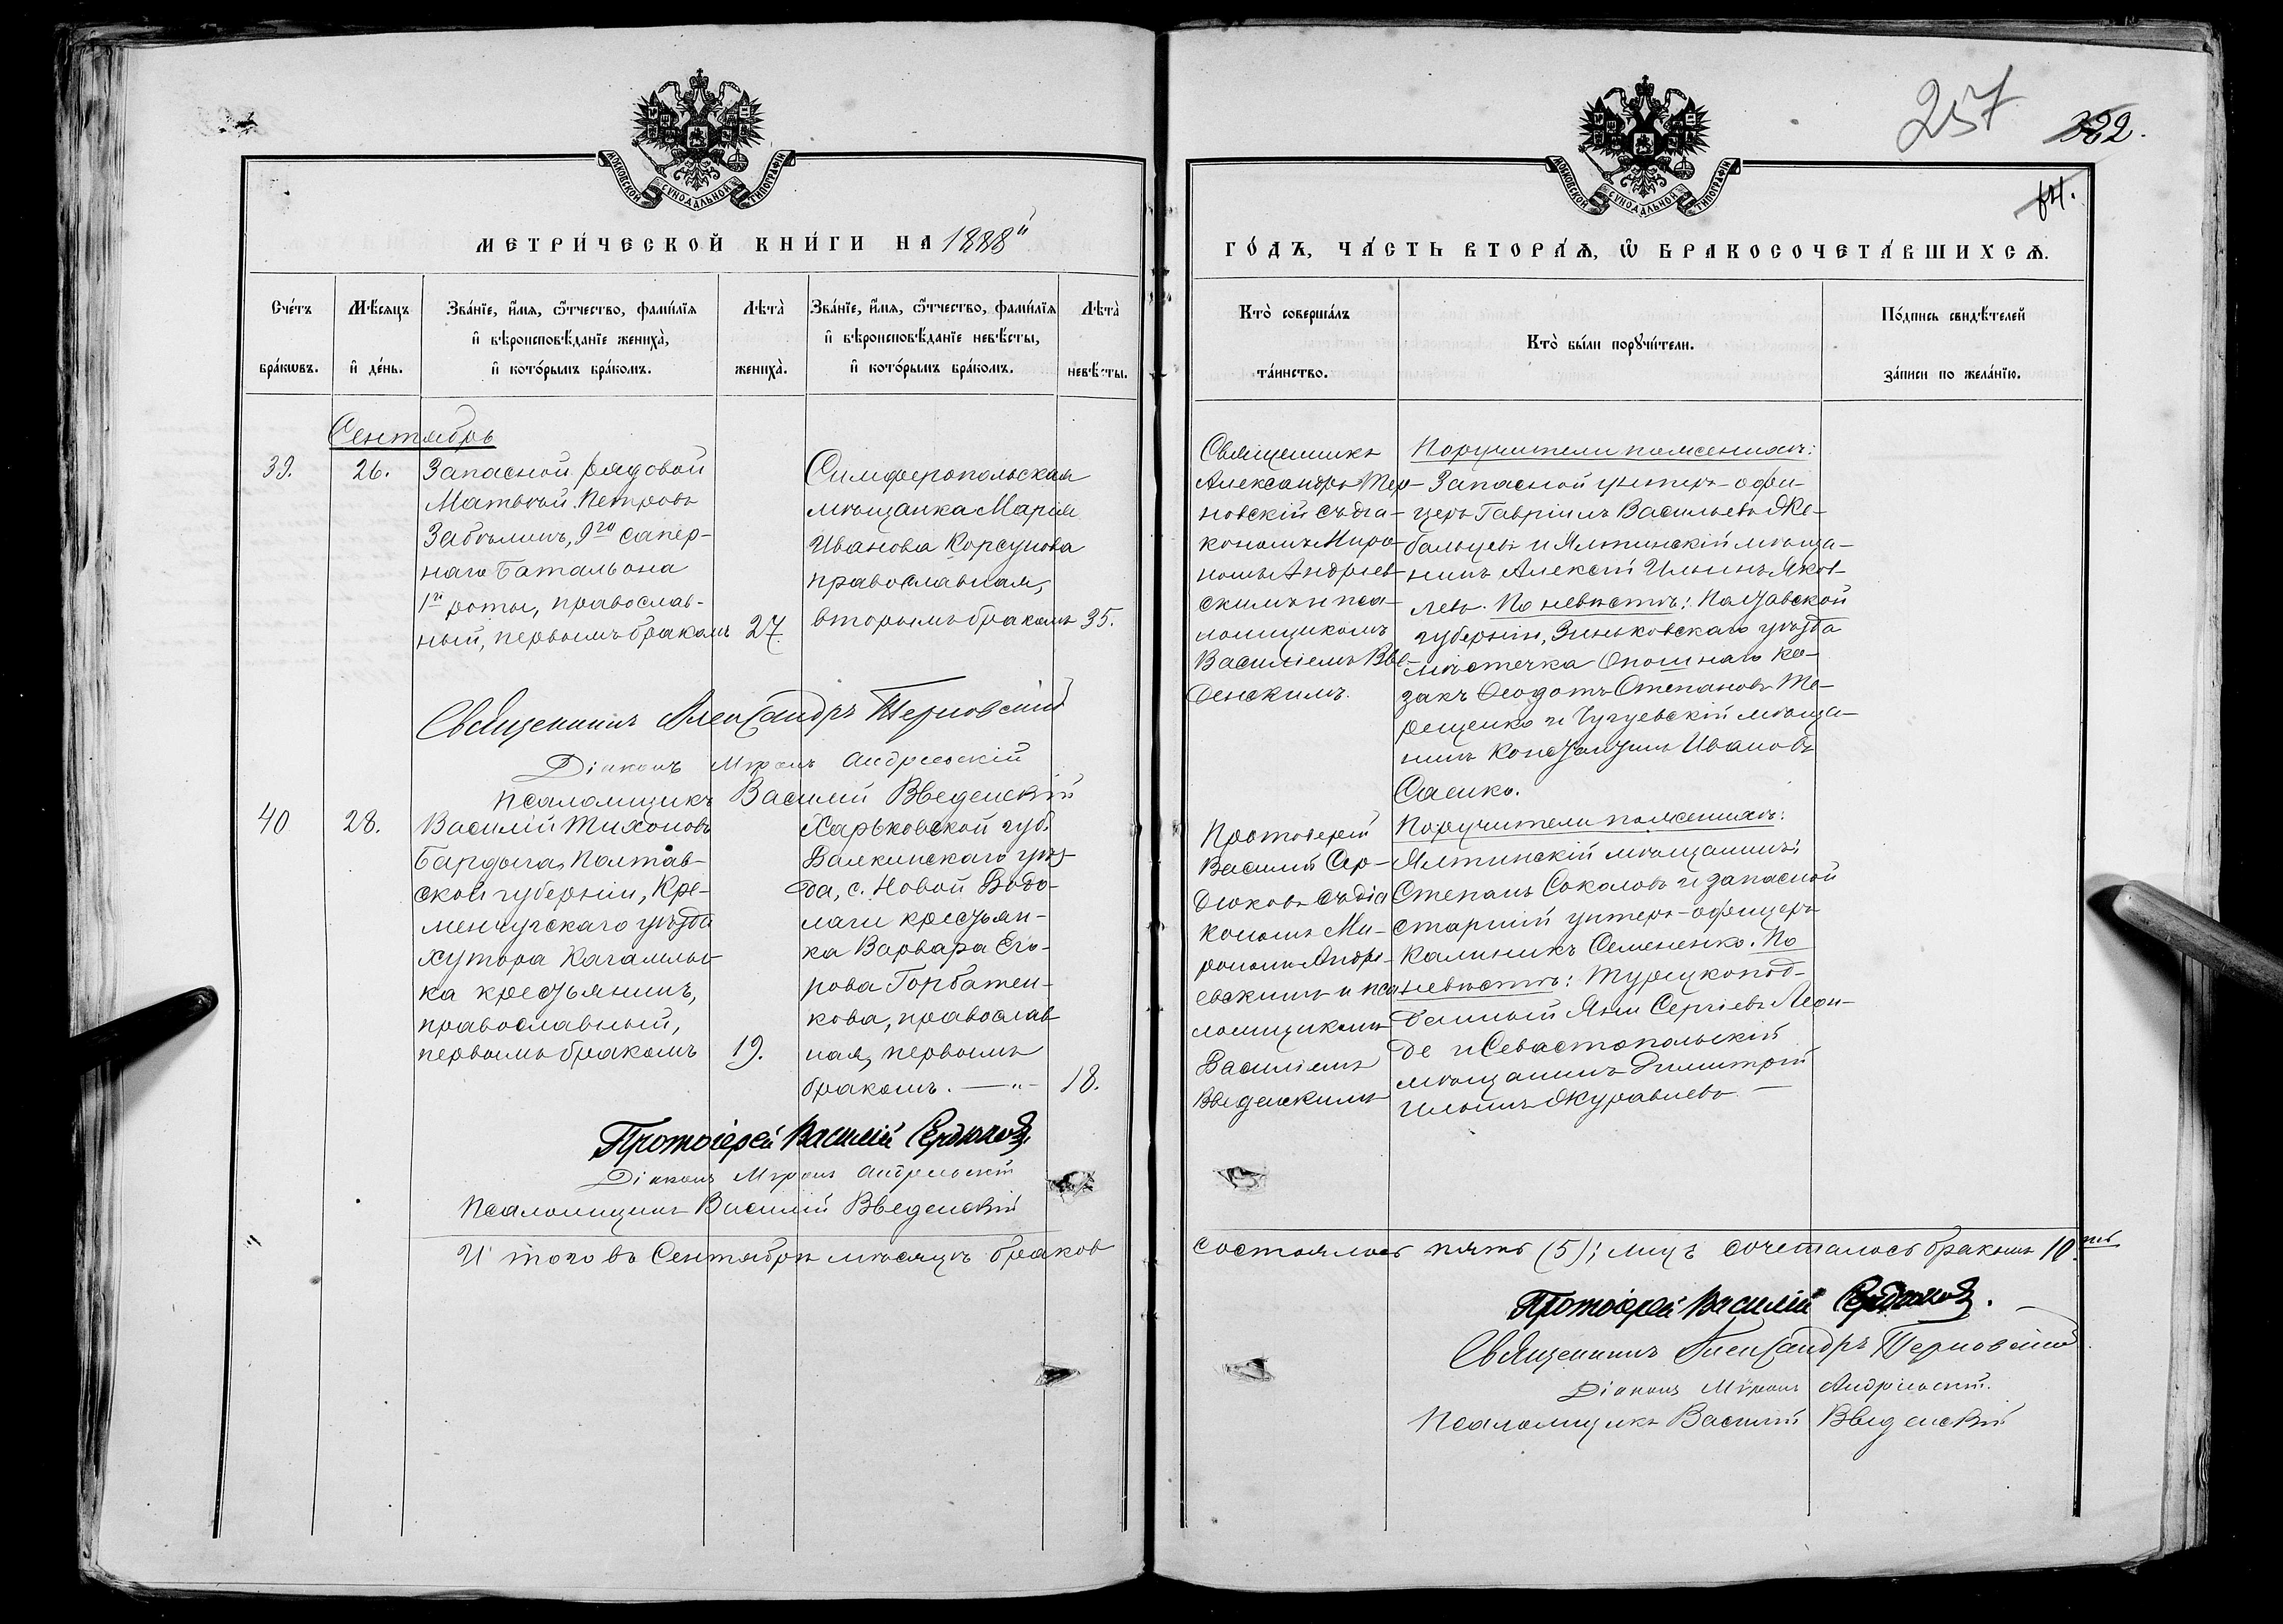 МОСКОВСКОЙ СУНОДАЛЬНОЙ ТИПОГРАФІИ
МЕТРИЧЕСКОЙ КНИГИ НА 1888й
Счетъ браковъ.
Мѣсяцъ и день.
Званіе, имя, отчество, фамилія и вѣроисповѣданіе жениха, и которымъ бракомъ.
Лѣта жениха.
Званіе, имя, отчество, фамилія и вѣроисповѣданіе невѣсты, и которымъ бракомъ.
Лѣта невѣсты.
Сентябрь
39.
26.
Запасной рядовой
Матвѣй Петровъ
Забѣлинъ, 9го сапер-
наго баталіона
1й роты, православ-
ный, первымъ бракомъ
27.
Симферопольская
мѣщанка Марія
Иванова Корсунова
православная,
вторымъ бракомъ
35.
Священникъ Александръ Терновскій
Діаконъ Миронъ Андріевскій
Псаломщикъ Василій Введенскій
40
28.
Василій Тихоновъ
Бардыга, Полтав-
ской губерніи, Кре-
менчугскаго уѣзда
хутора Кагамлы-
ка крестьянинъ,
православный,
первымъ бракомъ
19.
Харьковской губ.
Валкинскаго уѣз-
да, с. Новой Водо-
лаги крестьян-
ка Варвара Его-
рова Горбатен-
кова, православ-
ная, первымъ
бракомъ. —"—
18.
Протоіерей Василій Сердюковъ.
Діаконъ Миронъ Андріевскій
Псаломщикъ Василій Введенскій
Итого въ Сентябрѣ мѣсяцѣ браковъ
257
322.
64.
МОСКОВСКОЙ СУНОДАЛЬНОЙ ТИПОГРАФІИ
ГОДЪ, ЧАСТЬ ВТОРАЯ, Ѡ БРАКОСОЧЕТАВШИХСЯ.
Кто совершалъ таинство.
Кто были поручители.
Подпись свидѣтелей записи по желанію.
Священникъ
Александръ Тер-
новскій съ діа-
кономъ Миро-
номъ Андріев-
скимъ и пса-
ломщикомъ
Василіемъ Вве-
денскимъ.
Поручители по женихѣ:
Запасной унтеръ-офи-
церъ Гавріилъ Васильевъ Же-
бальцевъ и Ялтинскій мѣща-
нинъ Алексѣй Ильинъ Яков-
левъ. По невѣстѣ: Полтавской
губерніи, Зиньковскаго уѣзда
мѣстечка Опошнаго ко-
закъ Ѳеодотъ Степановъ Те-
рещенко и Чугуевскій мѣща-
нинъ Константинъ Ивановъ
Саенко.
Протоіерей
Василій Сер-
дюковъ съ діа-
кономъ Ми-
рономъ Андрі-
евскимъ и пса-
ломщикомъ
Василіемъ
Введенскимъ
Поручители по женихѣ:
Ялтинскій мѣщанинъ
Степанъ Соколовъ и запасной
старшій унтеръ-офицеръ
Калиникъ Семененко. По
невѣстѣ: Турецкопод-
данный Яни Сергіевъ Леон-
де и Севастопольскій
мѣщанинъ Димитрій
Ильинъ Журавлевъ —
состоялось пять (5); лицъ сочеталось бракомъ 10ть
Протоіерей Василій Сердюковъ.
Священникъ Александръ Терновскій
Діаконъ Миронъ Андріевскій.
Псаломщикъ Василій Введенскій